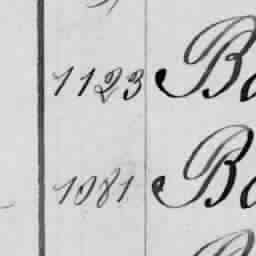 1123 Ba
1081 Ba